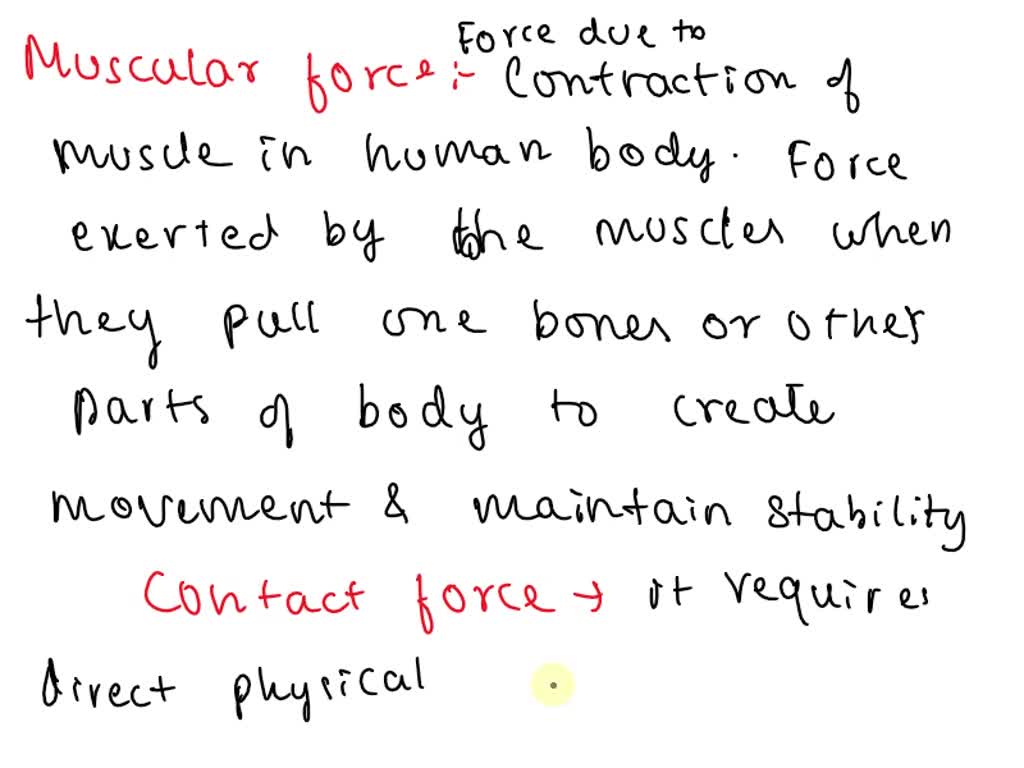 Force due to
Muscular force :- Contraction of
muscle in human body. Force
exerted by the muscles when
they pull one bones or other
parts of body to create
movement & maintain stability
Contact force → it requires
direct physical